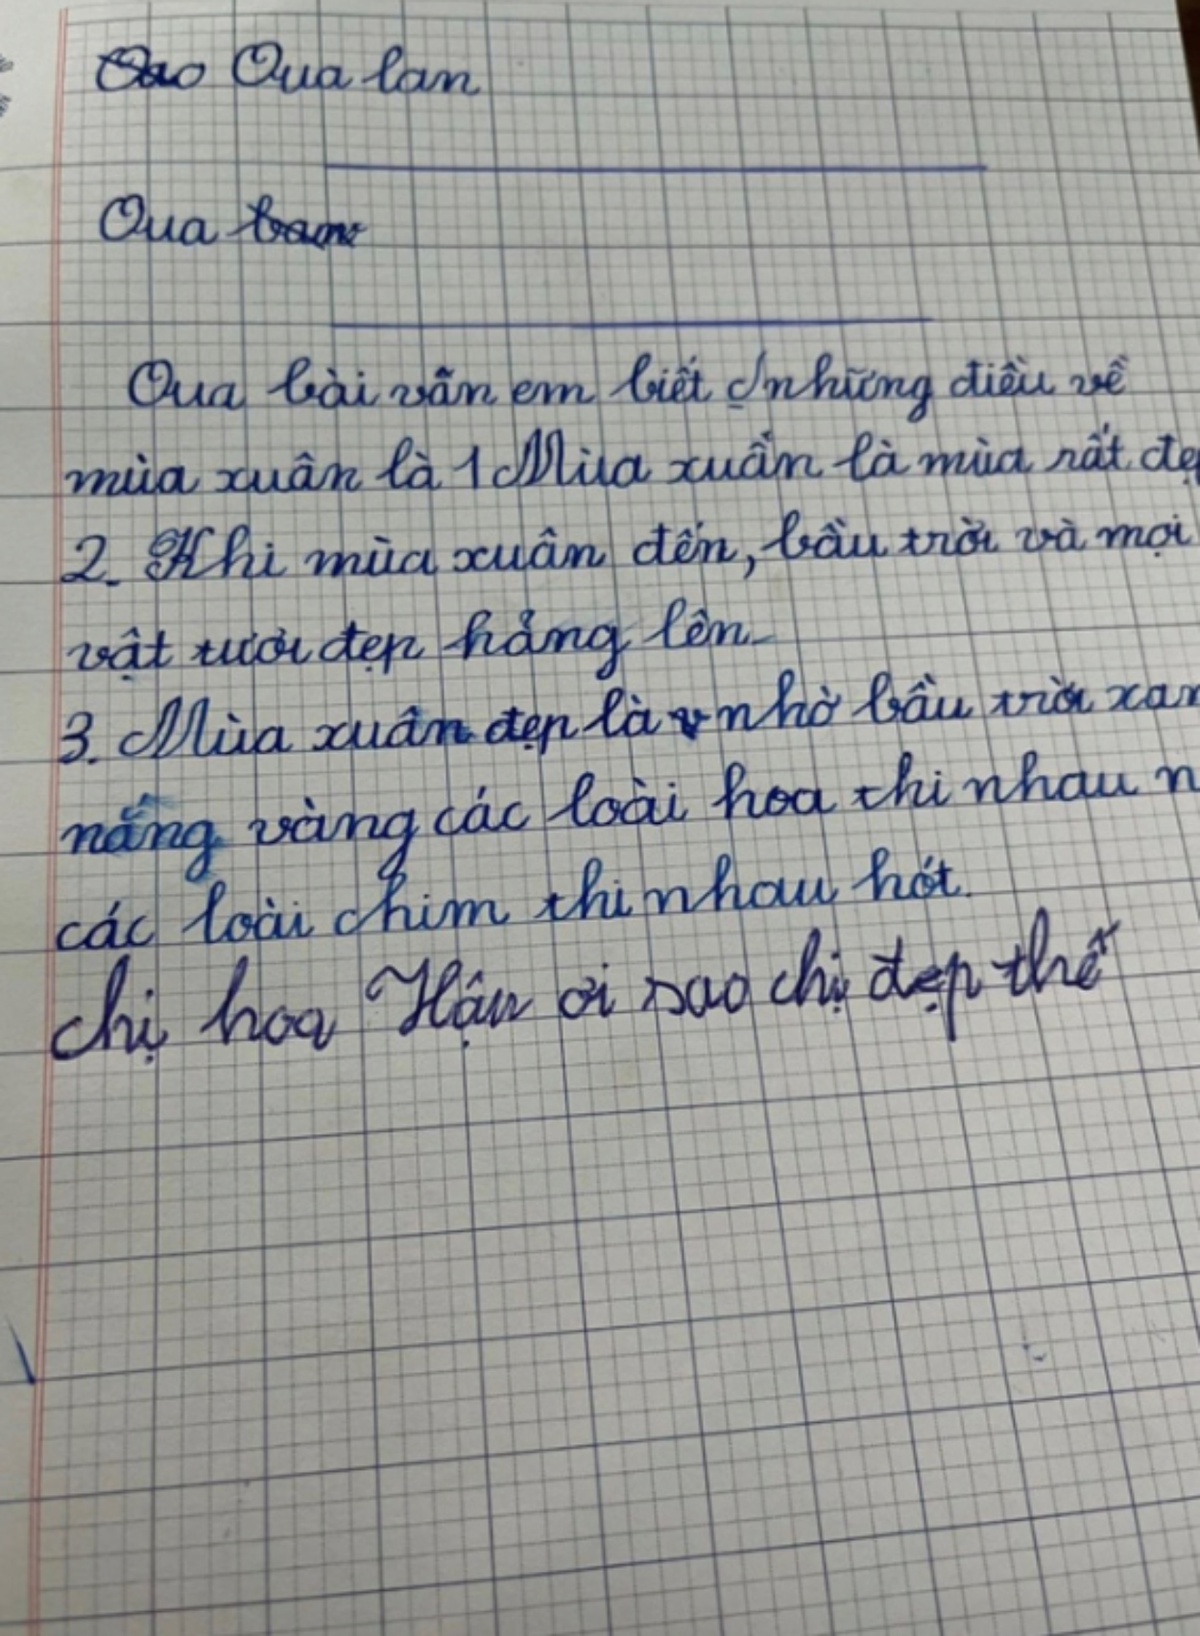 Qua lan
Qua
Qua bài văn em biết những điều về
mùa xuân là 1 Mùa xuân là mùa rất đẹ
2. Khi mùa xuân đến, bầu trời và mọi
vật tươi đẹp hẳng lên.
3. Mùa xuân đẹp là nhờ bầu trời xan
nắng vàng các loài hoa thi nhau n
các loài chim thi nhau hót.
chị hoa Hậu ơi sao chị đẹp thế